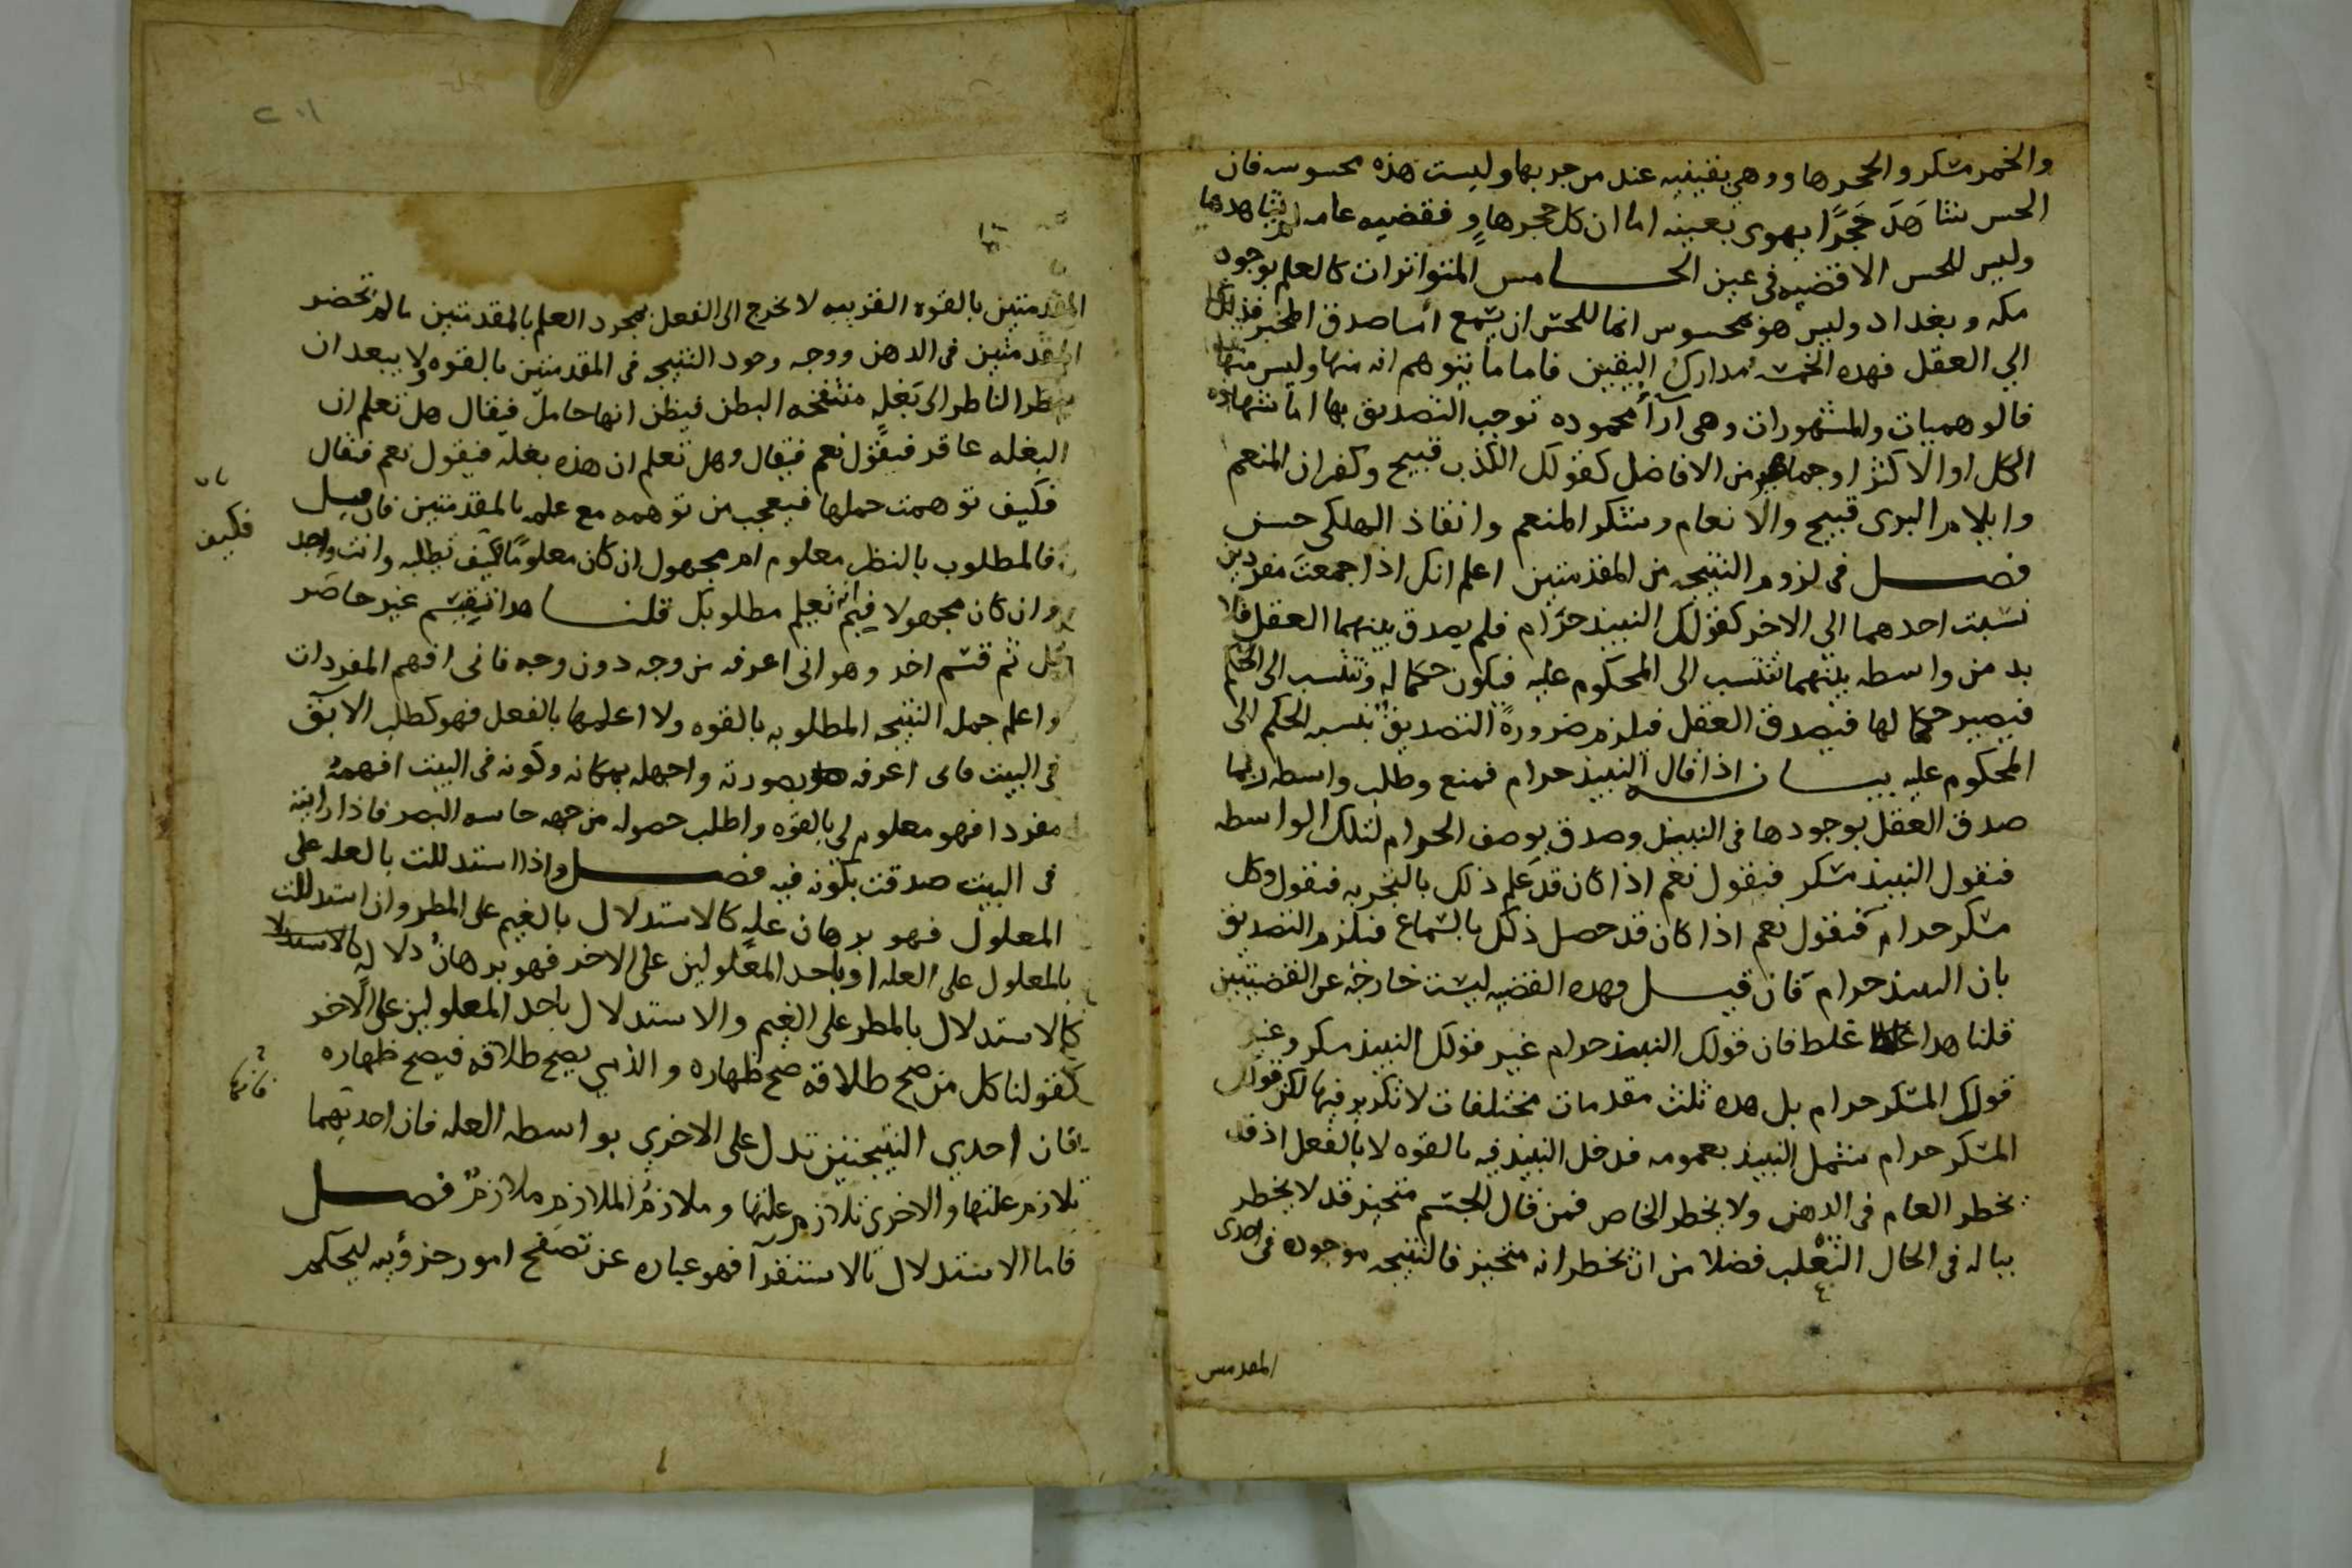 والخمر مسكر والحجر هاوٍ وهي يقينيه عند من جربها وليست هذه محسوسه فان
الحس شاهَدَ حَجَرًا يهوى بعينه اما ان كل حجر هاوٍ فقضيه عامه لم يشاهدها
وليس للحس الا قضيه في عين الخامس المتواترات كالعلم بوجود
مكه وبغداد وليس هو محسوس انما للحس ان يسمع اما صدق المخبر فذلك
الي العقل فهده الخمسه مدارك اليقين فاما ما يتوهم انه منها وليس منها
فالوهميات والمشهورات وهى آرأ محموده توجب التصديق بها اما شهاده
الكل او الاكثر او جماهير من الافاضل كقولك الكذب قبيح وكفران المنعم
وايلام البرى قبيح والانعام وشكر المنعم وانقاذ الهلكى حسن
فصل فى لزوم النتيجه من المقدمتين اعلم انك اذا جمعت مفردين
نسبت احدهما الى الاخر كقولك النبيذ حرام فلم يصدق بينهما العقل فلا
بد من واسطه بينهما تنتسب الى المحكوم عليه فيكون حكما له وتنتسب الى الحكم
فيصير حكما لها فيصدق العقل فيلزم ضرورةً التصديق بنسبه الحكم الى
المحكوم عليه بيانه اذا قال النبيذ حرام فمنع وطلب واسطه ربما
صدق العقل بوجودها فى النبيذ وصدق بوصف الحرام لتلك الواسطه
فنقول النبيذ مسكر فيقول نعم اذا كان قد علم ذلك بالتجربه فنقول وكل
مسكر حرام فيقول نعم اذا كان قد حصل ذلك بالسماع فيلزم التصديق
بان النبيذ حرام فان قيل فهده القضيه ليست خارجه عن القضيتين
قلنا هدا غلط فان قولك النبيذ حرام غير قولك النبيذ مسكر وغير
قولك المسكر حرام بل هده ثلث مقدمات مختلفات لا تكرير فيها لكن قولك
المسكر حرام شمل النبيذ بعمومه فدخل النبيذ فيه بالقوه لا بالفعل اذ قد
يخطر العام فى الدهن ولا يخطر الخاص فمن قال الجسم متحيز قد لا يخطر
بباله فى الحال الثعلب فضلا من ان يخطر انه متحيز فالنتيجه موجوده فى احدى
المقدمتين
٢٠١
المقدمتين بالقوه القريبه لا تخرج الى الفعل بمجرد العلم بالمقدمتين مالم تحضر
المقدمتين فى الدهن ووجه وجود النتيجه فى المقدمتين بالقوه ولا يبعد ان
ينظر الناظر الى بَغلهٍ منتفخه البطن فيظن انها حامل فيقال هل تعلم ان
البغله عاقر فيقول نعم فيقال وهل تعلم ان هذه بغله فيقول نعم فيقال
فكيف توهمت حملها فيعجب من توهمه مع علمه بالمقدمتين فان قيل
فالمطلوب بالنظر معلوم ام مجهول ان كان معلومًا كيف تطلبه وانت واجد
فكيف
وان كان مجهولا فبم تعلم مطلوبك قلنا هدا تقسيم غير حاصر
بل ثم قسم اخر وهو انى اعرفه من وجه دون وجه فانى افهم المفردات
واعلم جمله النتيجه المطلوبه بالقوه ولا اعلمها بالفعل فهو كطلب الابق
فى البيت فانى اعرفه بصورته واجهله بمكانه وكونه فى البيت افهمه
مفردا فهو معلوم لى بالقوه واطلب حصوله من جهه حاسه البصر فاذا رايته
فى البيت صدقت بكونه فيه فصل واذا استدللت بالعله على
المعلول فهو برهان عله كالاستدلال بالغيم على المطر وان استدللت
بالمعلول على العله او باحد المعلولين على الاخر فهو برهان دلاله كالاستدلا
كالاستدلال بالمطر على الغيم والاستدلال باحد المعلولين على الاخر
كقولنا كل من صح طلاقه صح ظهاره والذمي يصح طلاقه فيصح ظهاره
فان احدي النتيجتين تدل على الاخري بواسطه العله فان احديهما
تلازم علتها والاخرى تلازم علتها وملازم الملازم ملازم فصل
فاما الاستدلال بالاستقرآ فهو عباره عن تصفح امور جزؤيه ليحكم